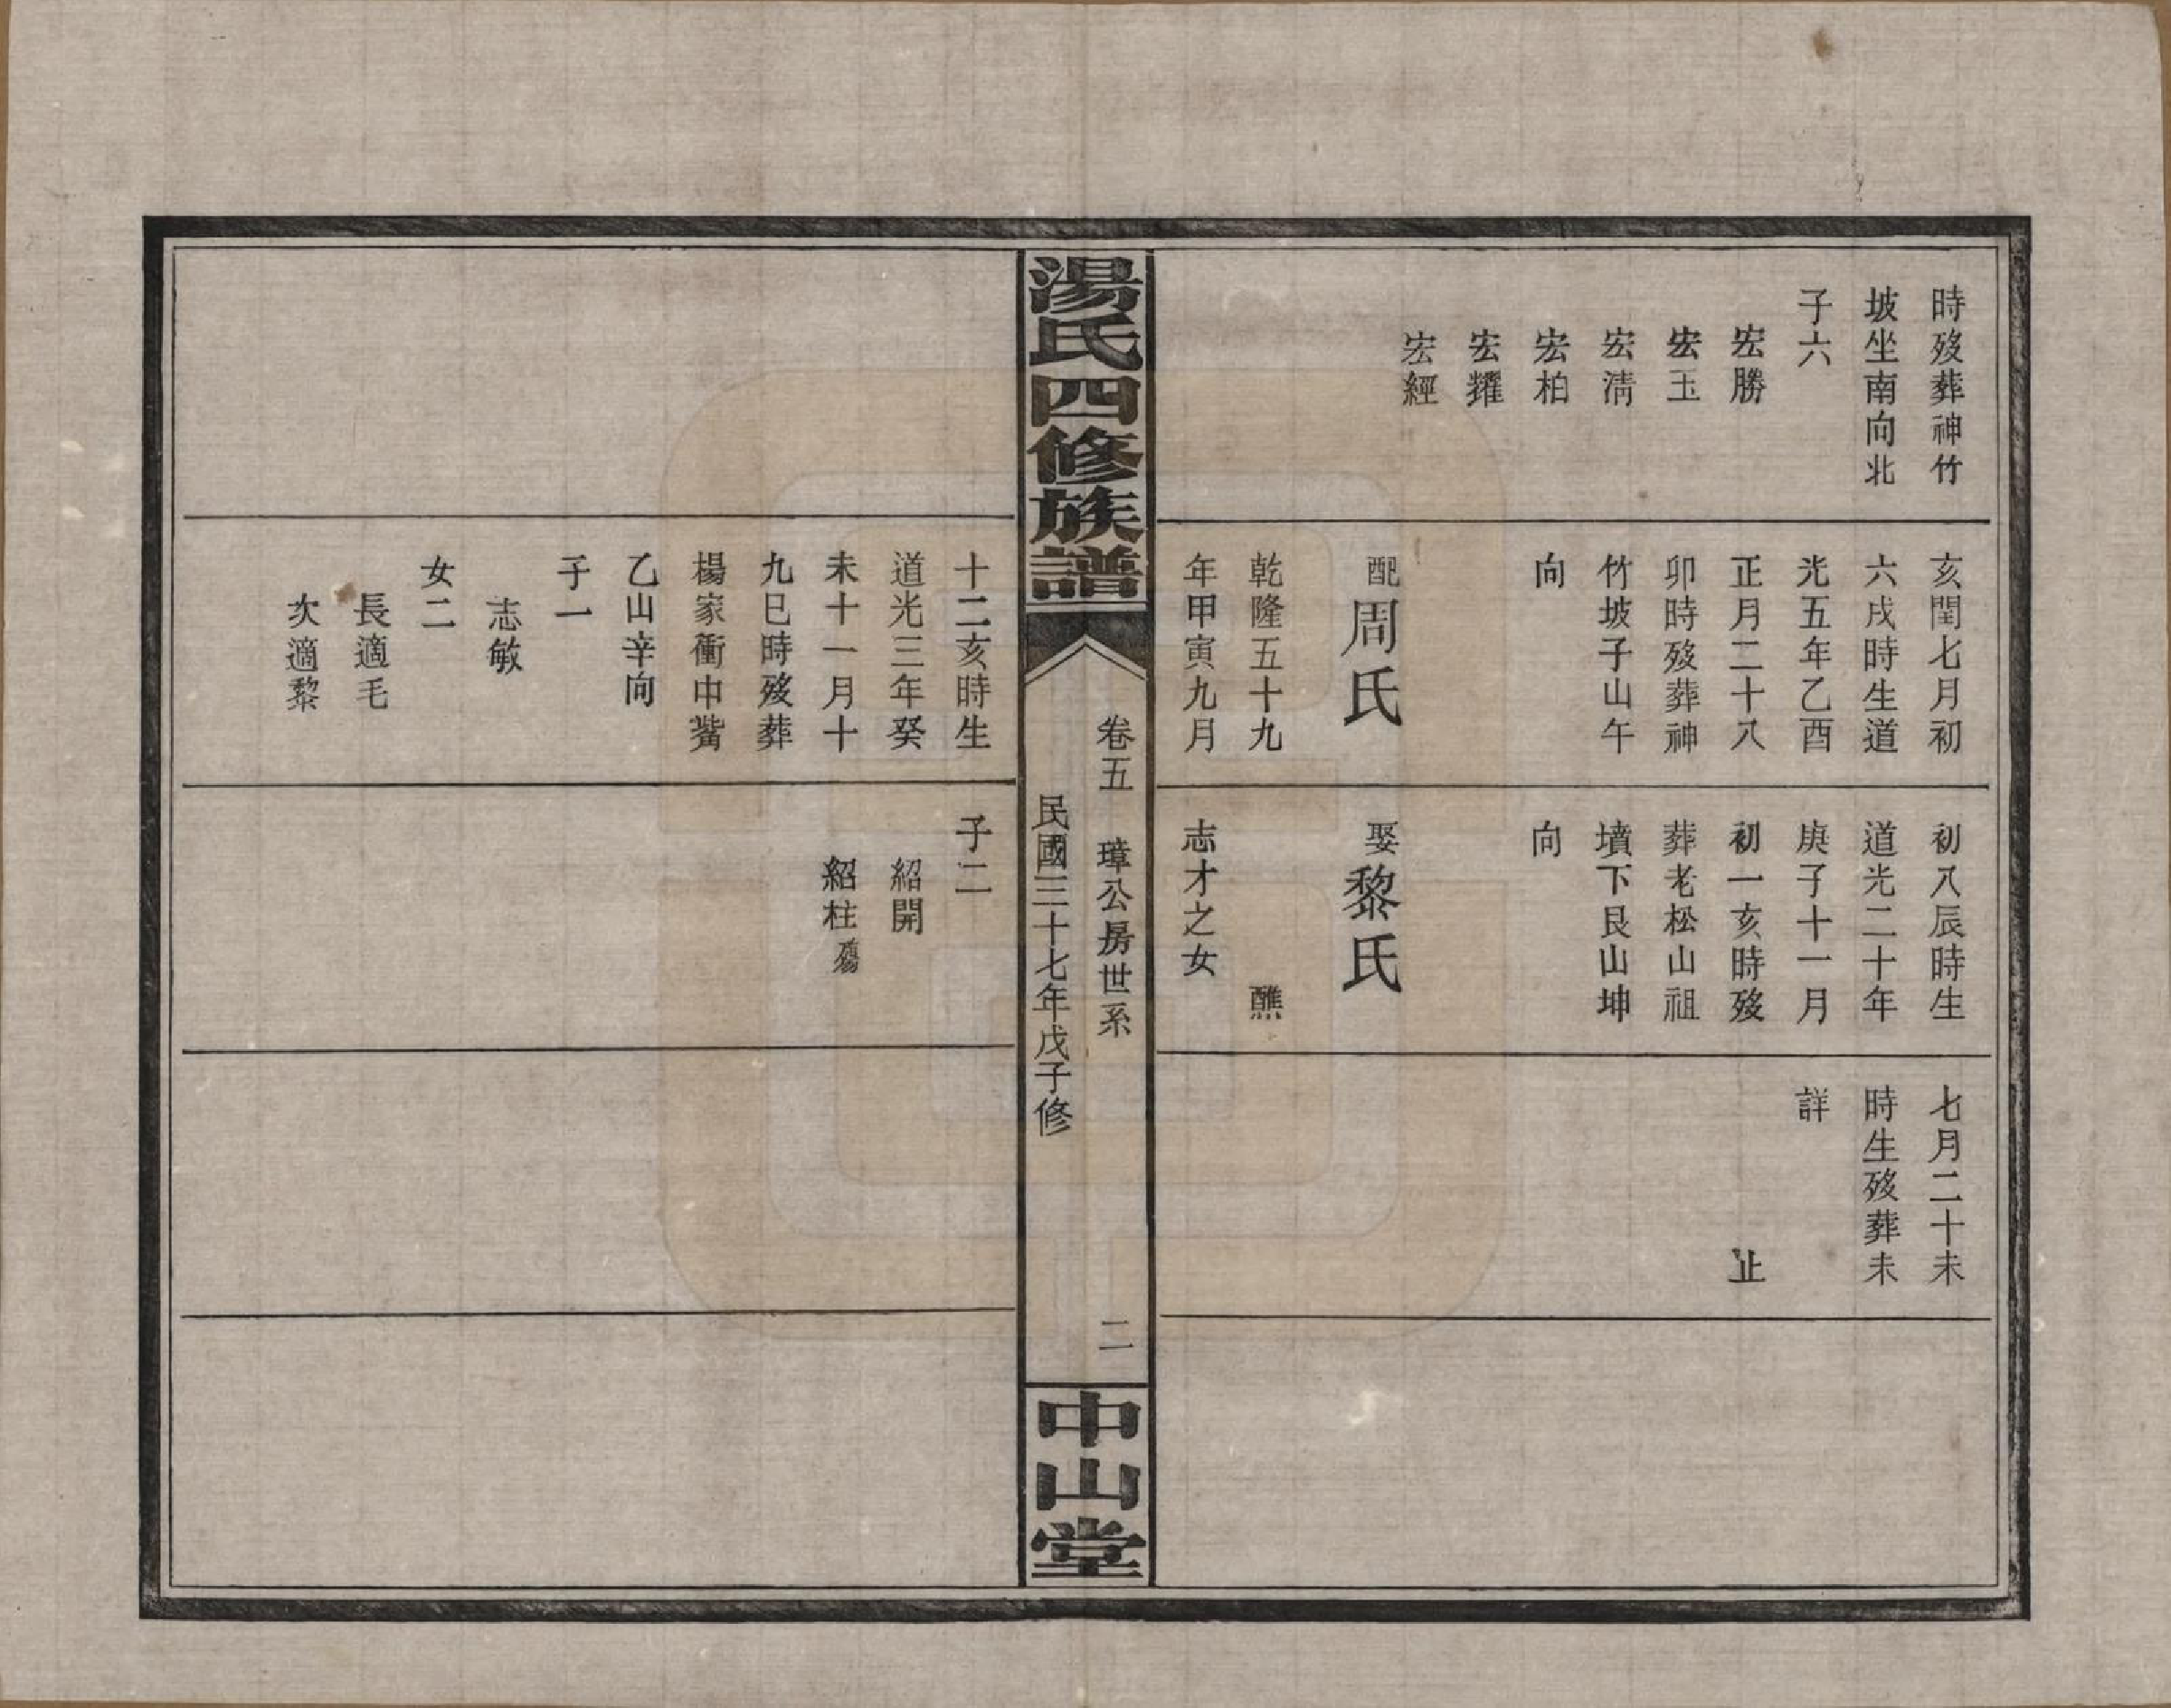 時歿葬神竹
坡坐南向北
子六
宏勝
宏玉
宏淸
宏柏
宏耀
宏經
亥閏七月初
六戌時生道
光五年乙酉
正月二十八
卯時歿葬神
竹坡子山午
向
配周氏
乾隆五十九
年甲寅九月
初八辰時生
道光二十年
庚子十一月
初一亥時歿
葬老松山祖
墳下艮山坤
向
娶黎氏
醮
志才之女
七月二十未
時生歿葬未
詳
止
湯氏四修族譜
卷五 璋公房世系 二
民國三十七年戊子修
中山堂
十二亥時生
道光三年癸
未十一月十
九巳時歿葬
楊家衝中觜
乙山辛向
子一
志敏
女二
長適毛
次適黎
子二
紹開
紹柱殤